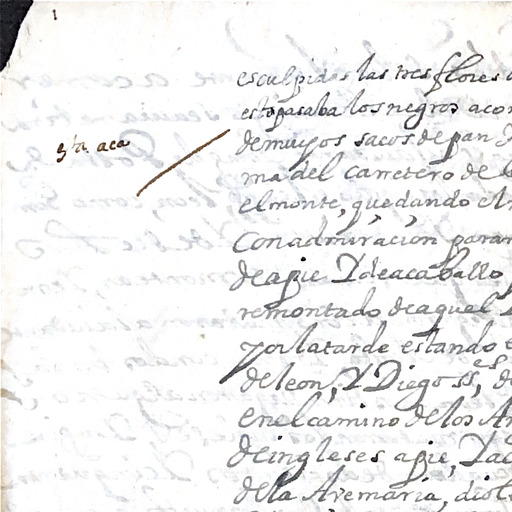 1
esculpidas las tres flores
esto pasaba los negros acom
sta aca
demuyos sacos de pan
ma del carretero de
el monte, quedando el
Con admiracion para
de apie Y de acaballo
remontado de aquel
por la tarde estando
de leon, Y Diego ss.es,
en el camino de los
de ingleses apie, Y ac
de la Avemaria, dio